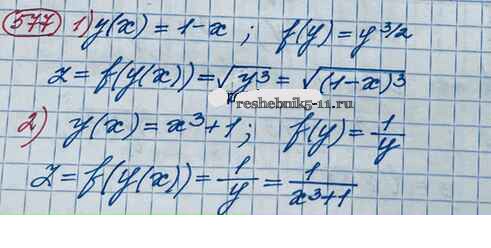 577 1) y(x) = 1-x ; f(y) = y^3/2
z = f(y(x)) = √y³ = √(1-x)³
reshebnik5-11.ru
2) y(x) = x³+1 ; f(y) = 1/y
z = f(y(x)) = 1/y = 1/(x³+1)